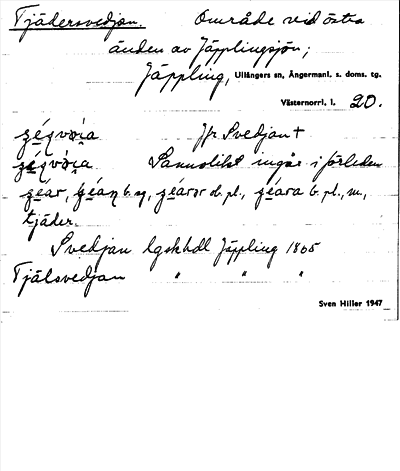 Tjädersvedjan. Område vid östra
änden av Jäpplingsjön;
Jäppling, Ullångers sn, Ångermanl. s. doms. tg.
Västernorrl. l. 20.
Jfr Svedjan †
Sannolikt ingår i förleden
b. sg, d. pl., b. pl., m,
tjäder.
Svedjan lgskhdl Jäppling 1805
Tjälsvedjan " " "
Sven Hiller 1947